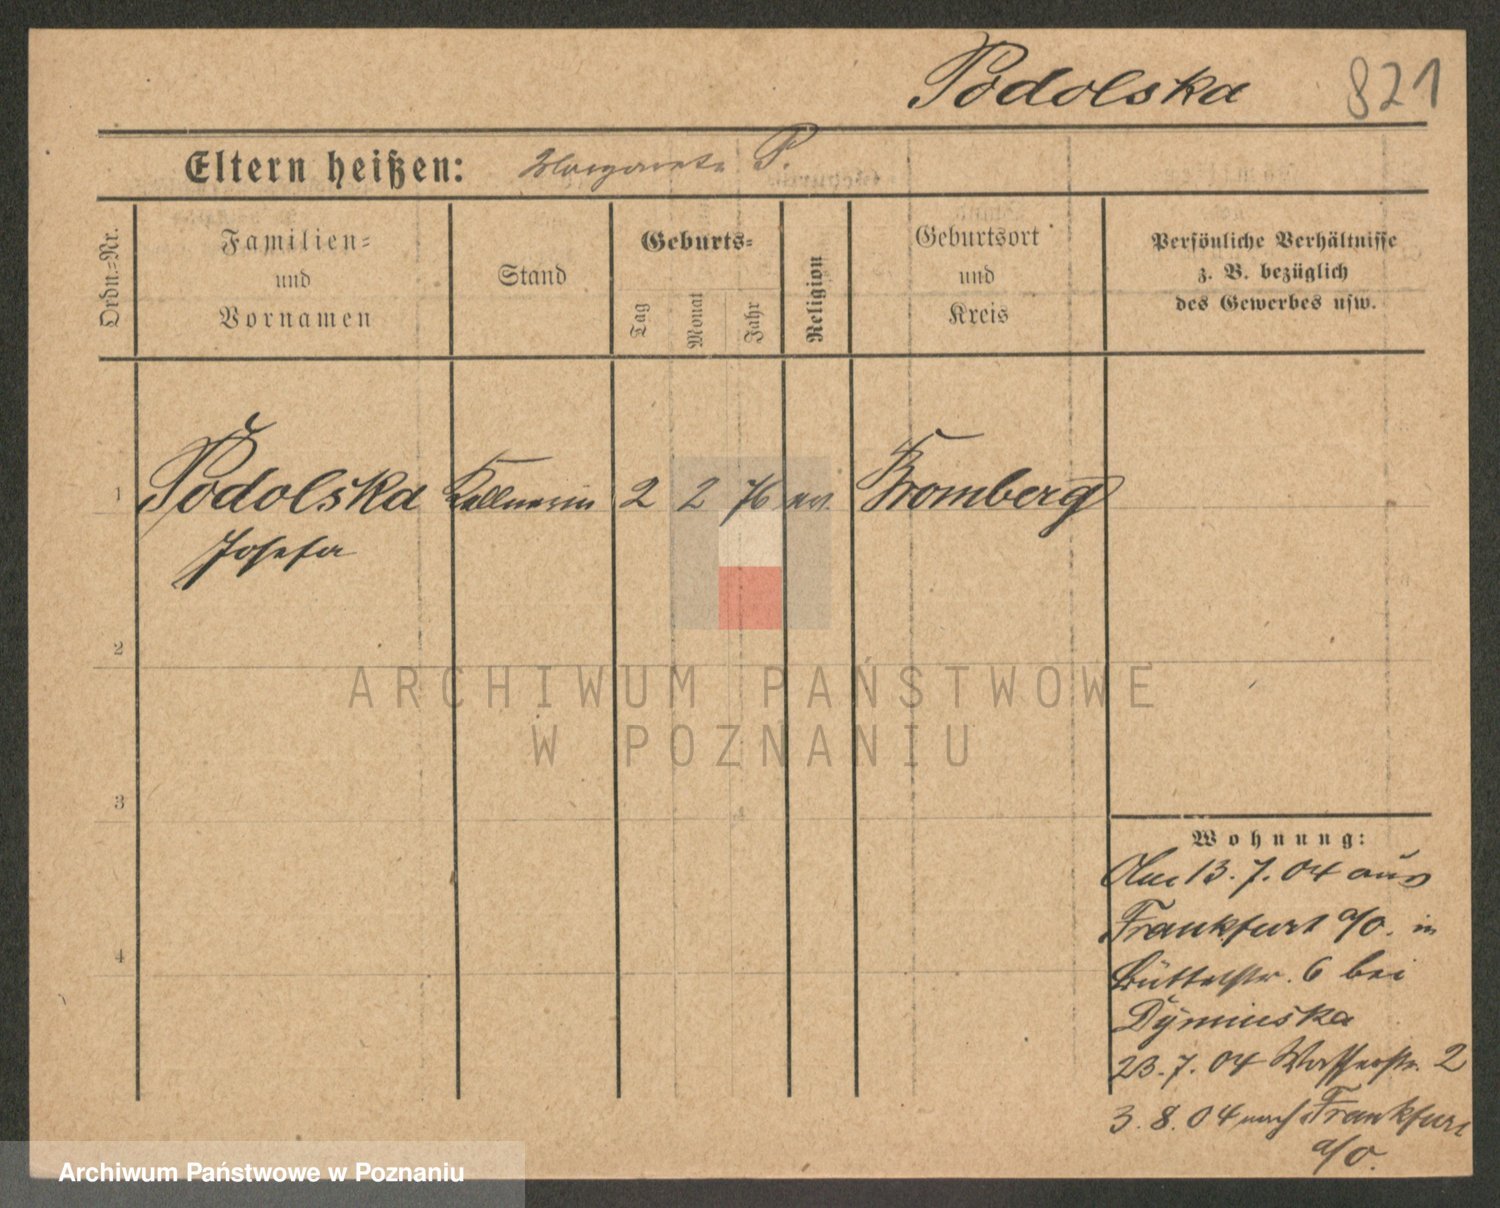 Podolska 821
Eltern heißen: Margarete P.
Ordn.=Nr.
Familien=
und
Vornamen
Stand
Geburts=
Tag
Monat
Jahr
Religion
Geburtsort
und
Kreis
Persönliche Verhältnisse
z. B. bezüglich
des Gewerbes usw.
1 Podolska Kellnerin 2 2 76 Bromberg
Josefa
2
ARCHIWUM PAŃSTWOWE
W POZNANIU
3
4
Wohnung:
Am 13. 7. 04 aus
Frankfurt a/O. in
Büttelstr. 6 bei
Dyminska
23. 7. 04 Wasserstr. 2
3. 8. 04 nach Frankfurt
a/O.
Archiwum Państwowe w Poznaniu